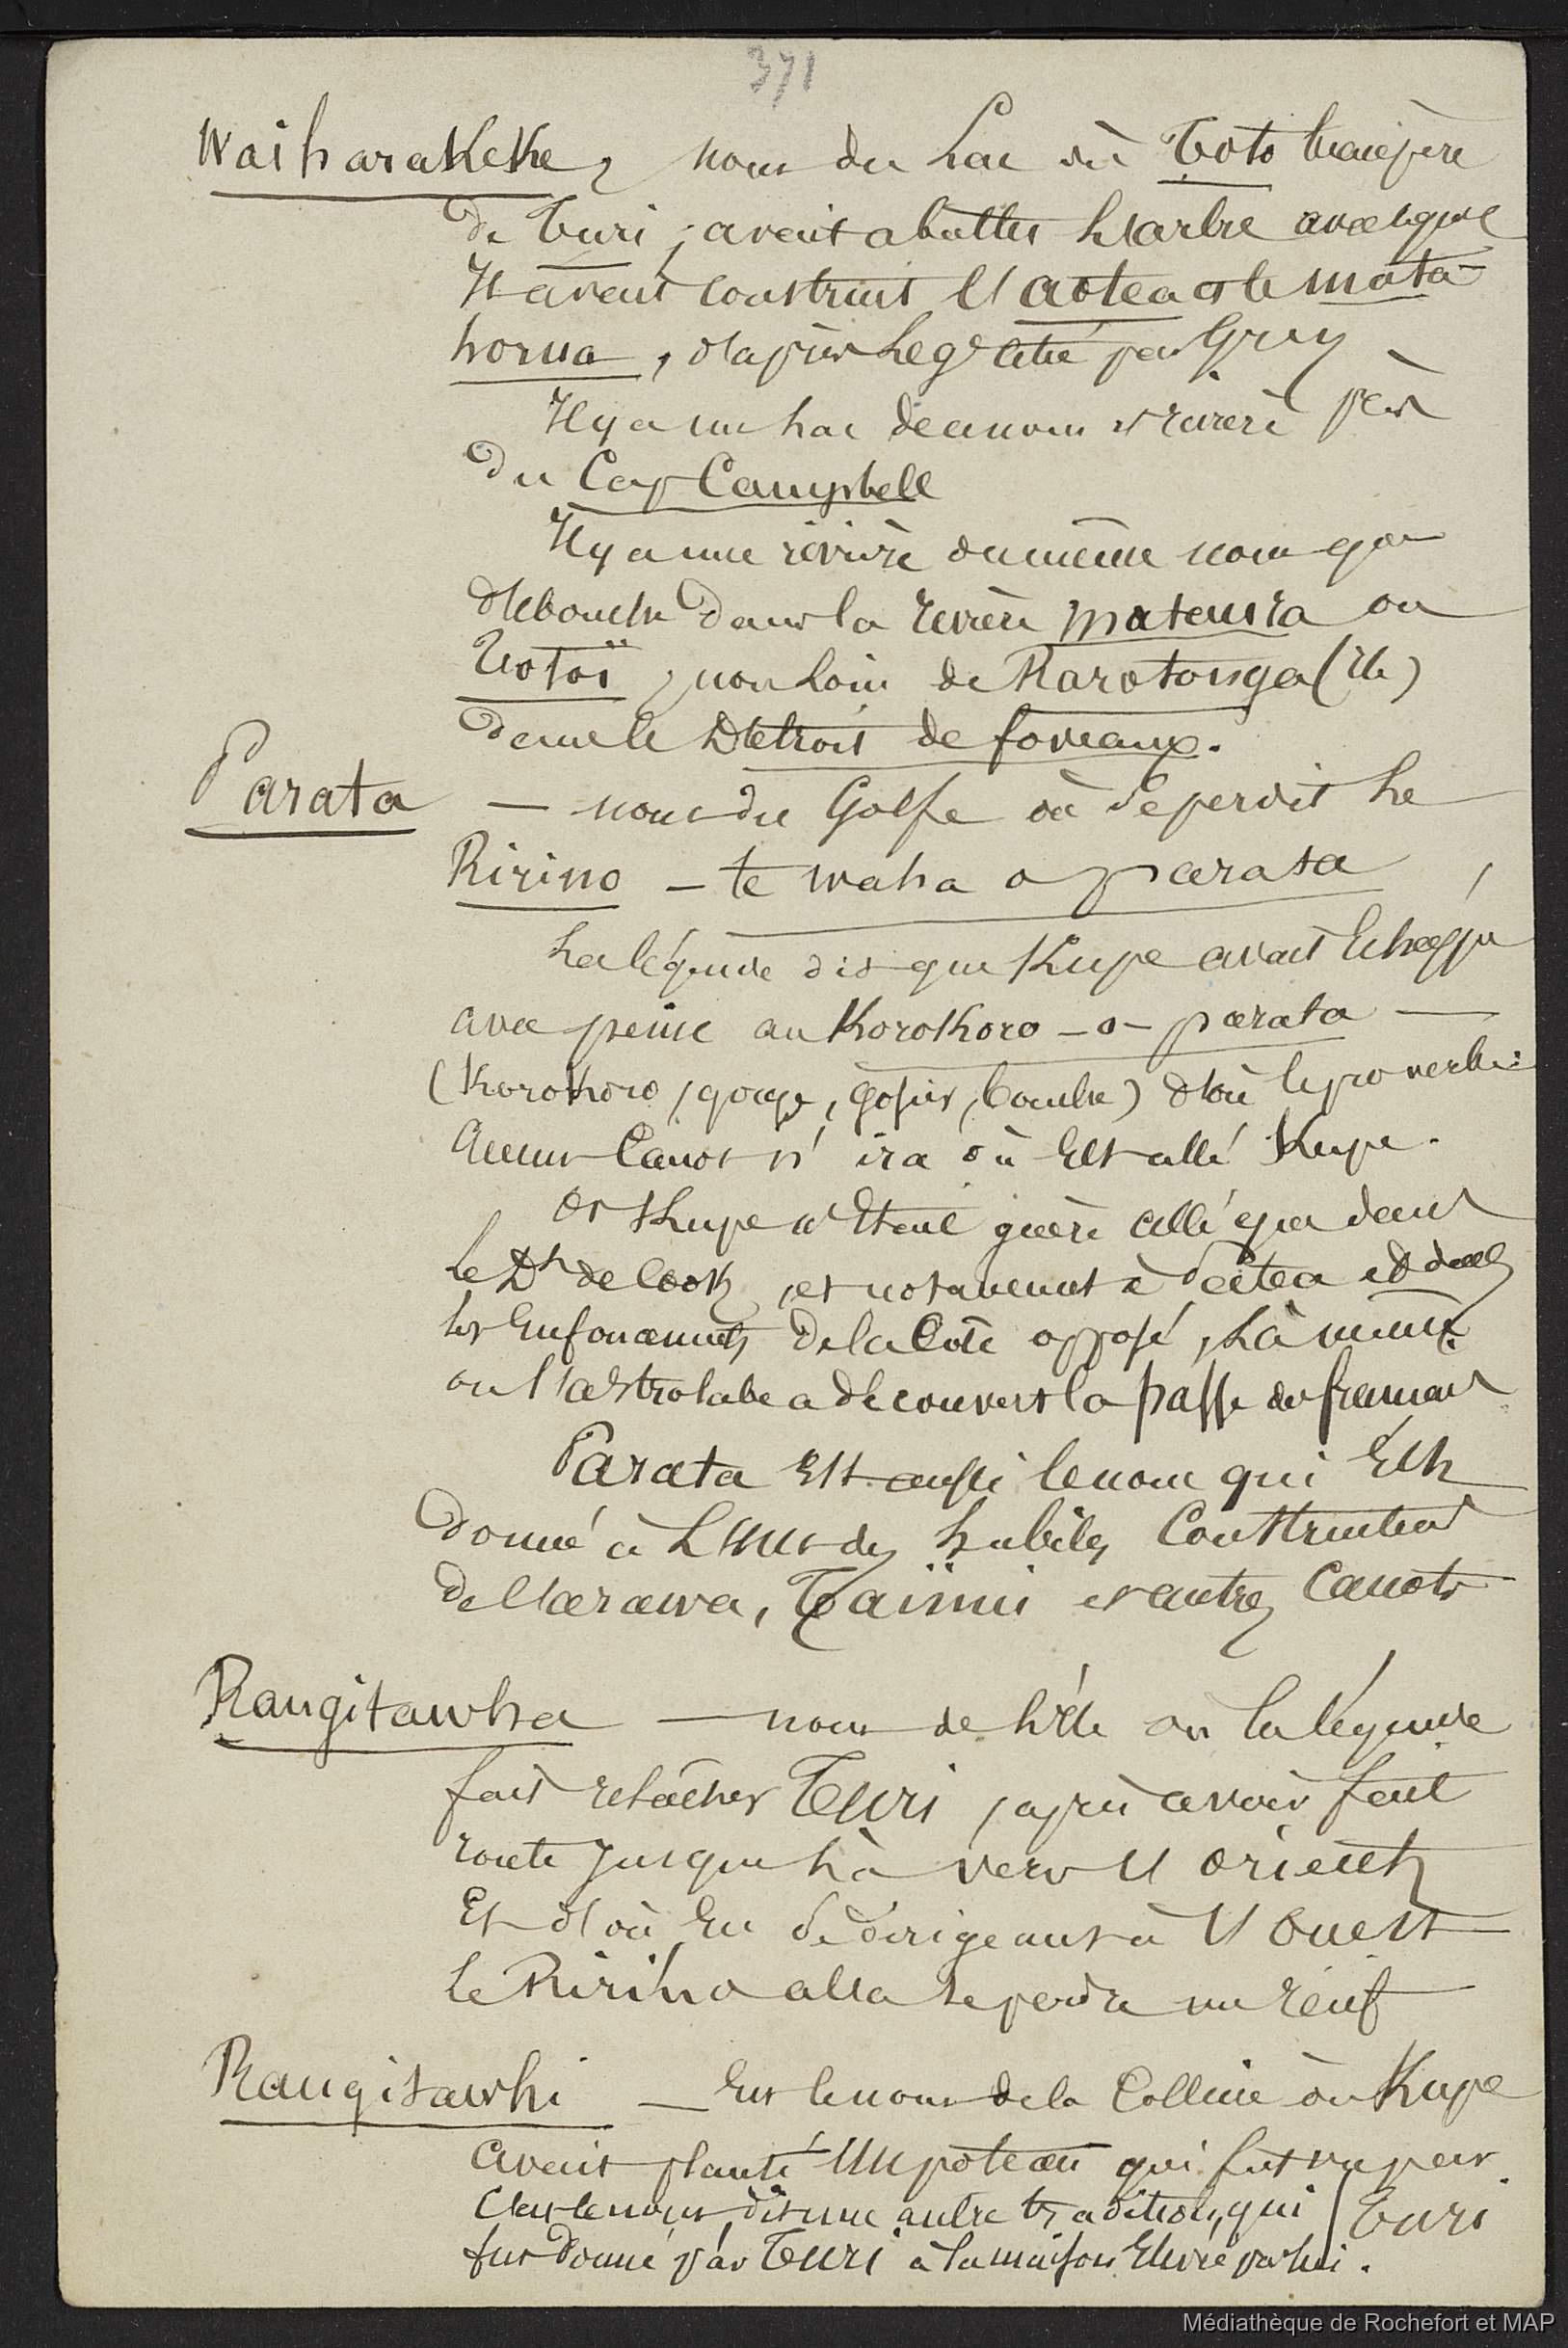 371
Waiharakeke, nom du Lac où Toto beaupère
de Turi, avait abattu l'arbre avec lequel
Il avait construit l'aotea et le mata-
horua, d'après leg^e citée par Grey
Il y a un lac de ce nom et rivière près
du Cap Campbell
Il y a une rivière du même nom qui
débouche dans la rivière mataura ou
Totoï, non loin de Rarotonga (Ile)
dans le Détroit de foveaux.
Parata — nom du Golfe où se perdit le
Ririno — te waha o parata
La légende dit que Kupe avait échappé
avec peine au Korokoro - o - parata —
(Korokoro, gorge, gosier, bouche) d'où le proverbe:
Aucun Canot n'ira où Est allé Kupe.
Or Kupe n'Etait guère allé que dans
le D^t de Cook, et notamment à
les Enfoncements de la Côte opposé, là même
ou l'astrolabe a découvert la passe des français
Parata Est aussi le nom qui Est
donné à L'un des habiles Constructeurs
de l'arawa, Taïnui et autres Canots
Rangitawha — nom de l'Ile ou la légende
fait relâcher Turi, après avoir fait
route jusque là vers l'orient
Et d'où En se dirigeant à l'ouest
le Ririno alla se perdre un récif
Rangitawhi — Est le nom de la Colline où Kupe
avait planté un poteau qui fut vu par Turi
C'est le nom, dit une autre tradition, qui
fut donné par Turi à la maison Elevée par lui.
Médiathèque de Rochefort et MAP